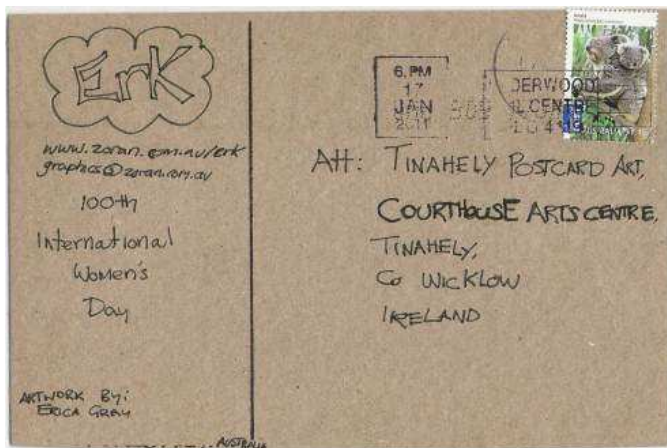 ErK
www.zoran.com.au/erk
graphics@zoran.com.au
100th
International
Women's
Day
ARTWORK By:
ERICA GRAY
AUSTRALIA
6. PM
17
JAN
2011
DERWOOD
L CENTRE
4119
Att: TINAHELY POSTCARD ART,
COURTHOUSE ARTS CENTRE,
TINAHELY,
Co WICKLOW
IRELAND